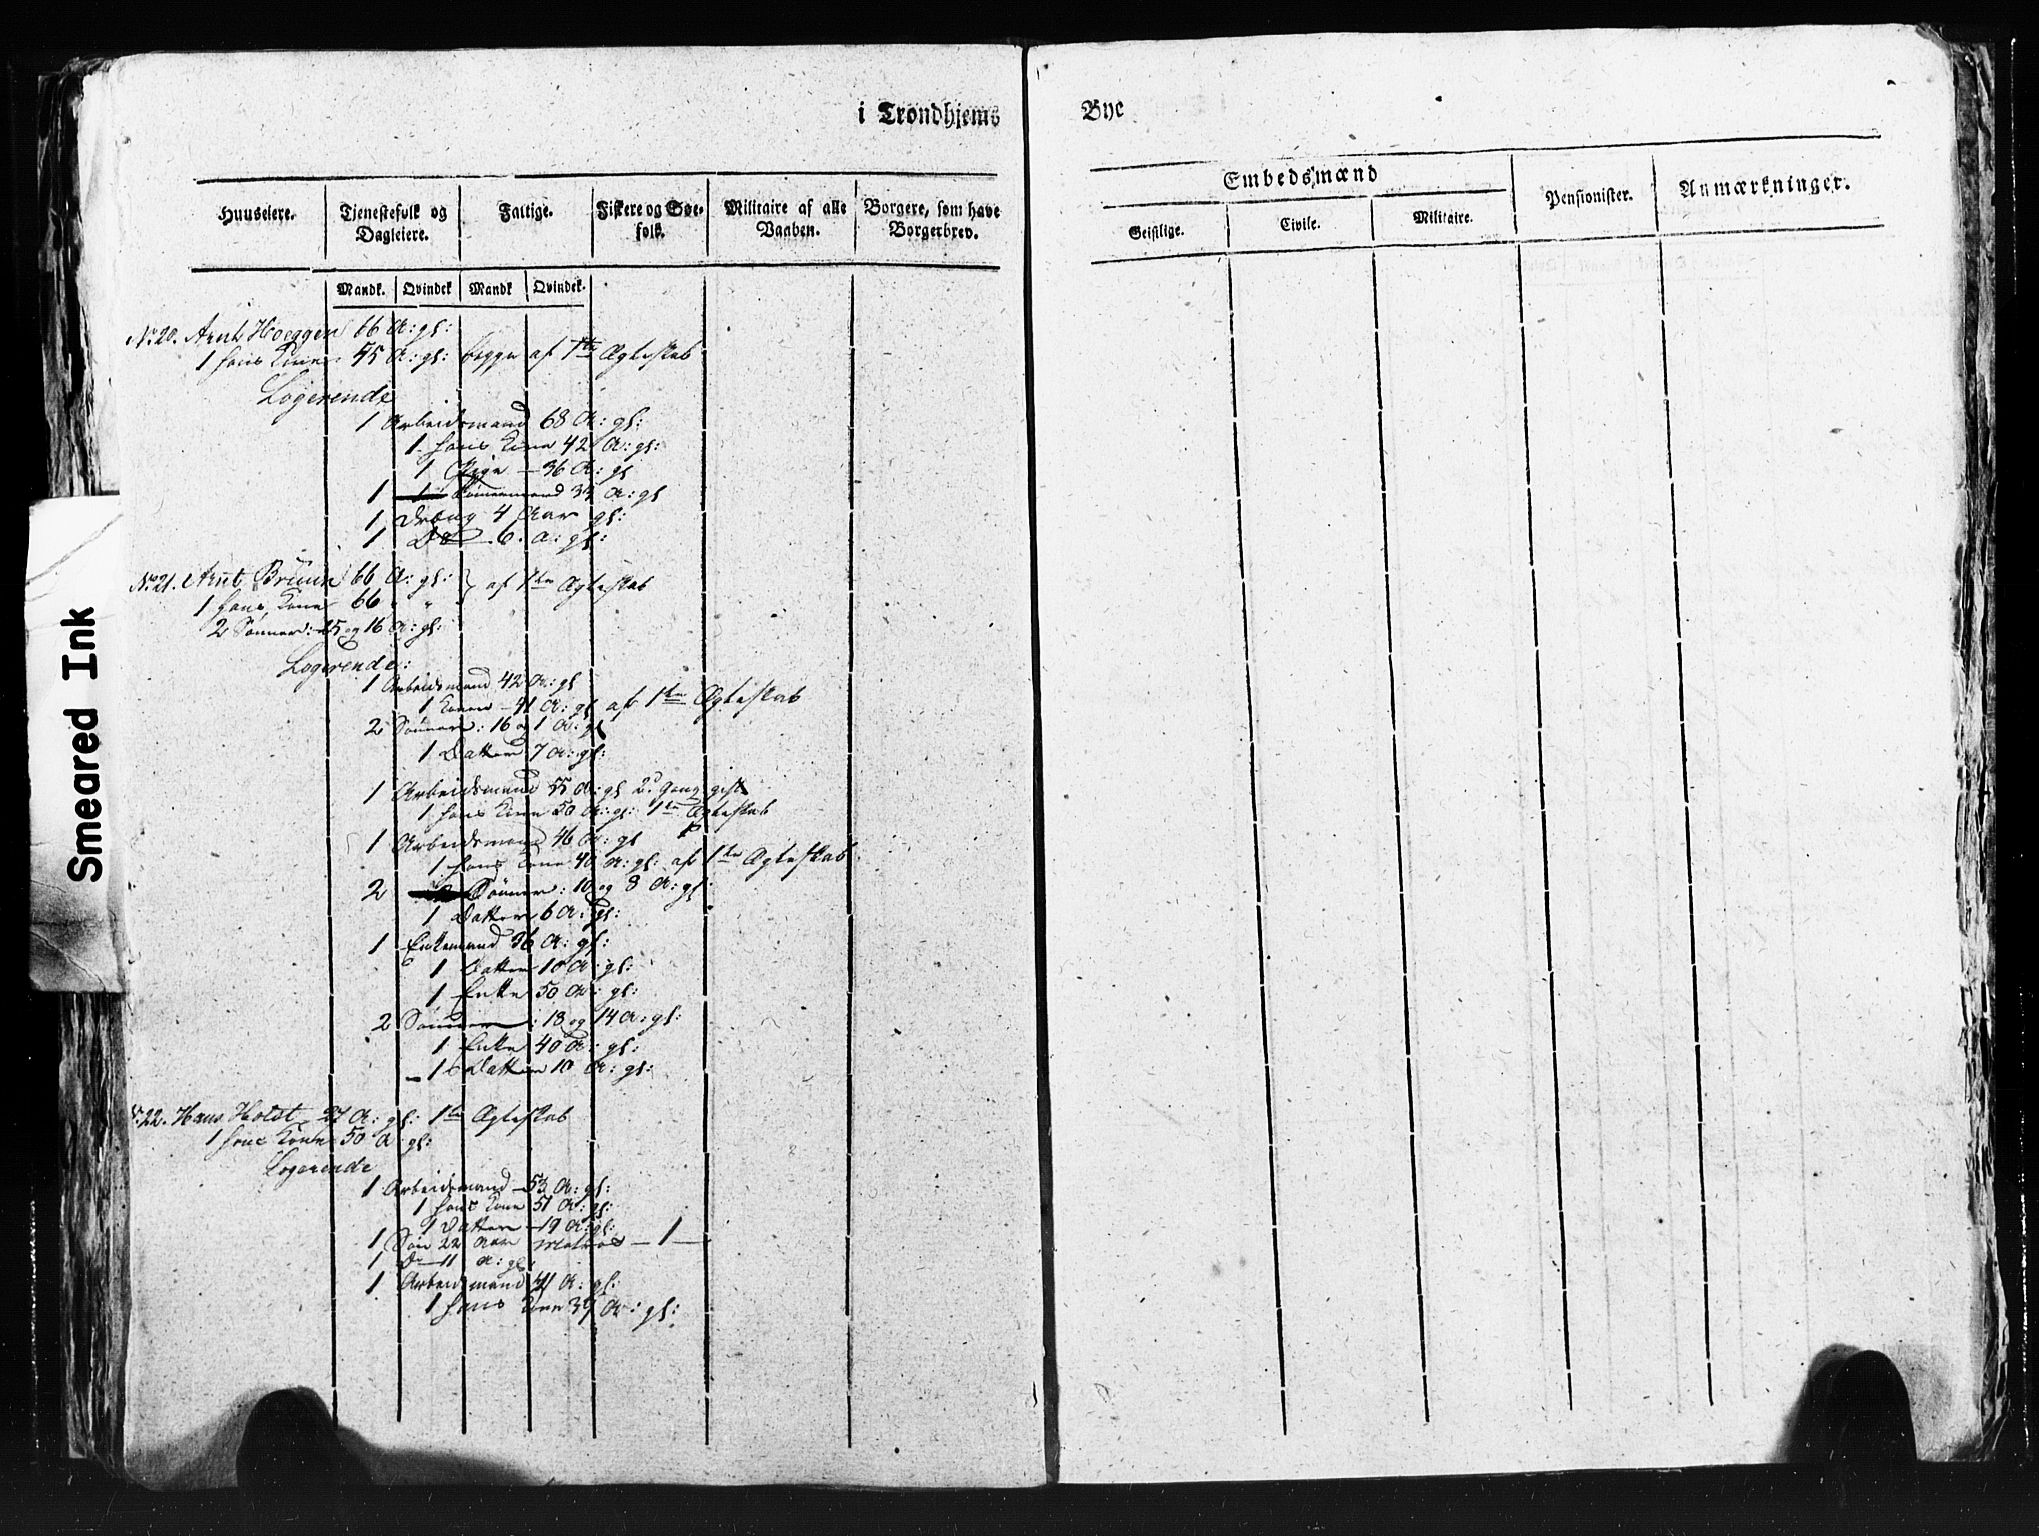 i Trondhjems Bye
Huuseiere. Tjenestefolk og Dagleiere. Fattige. Fiskere og Søefolk. Militaire af alle Vaaben. Borgere, som have Borgerbrev.
Embedsmænd Pensionister. Anmærkninger.
Geistlige. Civile. Militaire.
Mandk. Qvindek Mandk Qvindek.
No 20. Arnt Hoeggen 66 A: gl:
1 hans Kone 55 A: gl: begge af 1te Ægteskab
Logerende
1 Arbeidsmand 68 A: gl:
1 hans Kone 42 A: gl:
1 Pige 36 A: gl
1 Tømmermand 33 A: gl
1 Dreng 4 Aar gl:
1 Do 6 A: gl:
No 21. Arnt Bruun 66 A: gl: } af 1te Ægteskab
1 hans Kone 66 " "
2 Sønner: 25 og 16 A: gl:
Logerende:
1 Arbeidsmand 42 A: gl
1 Kone 41 A: gl af 1te Ægteskab
2 Sønner: 16 og 1 A: gl
1 Datter 7 A: gl:
1 Arbeidsmand 55 A: gl 2. Gang gift
1 hans Kone 50 A: gl: 1te Ægteskab
1 Arbeidsmand 46 A: gl
1 hans Kone 40 A: gl: af 1te Ægteskab
2 Sønner: 10 og 8 A: gl:
1 Datter 6 A: gl:
1 Enkemand 36 A: gl:
1 Datter 10 A: gl:
1 Enke 50 A: gl:
2 Sønner: 18 og 14 A: gl:
1 Enke 40 A: gl:
1 Datter 10 A: gl:
No 22. Hans Holst 27 A: gl: 1te Ægteskab
1 hans Kone 50 A gl:
Logerende
1 Arbeidsmand 53 A: gl:
1 hans Kone 51 A: gl:
1 Datter 19 A: gl:
1 Søn 22 Aar Matros — 1 —
1 Do 11 A: gl.
1 Arbeidsmand 41 A: gl:
1 hans Kone 39 A: gl:
Smeared Ink